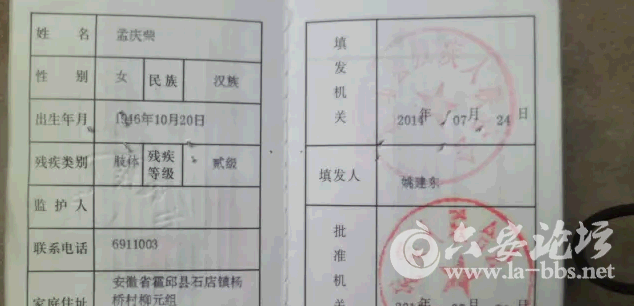 姓名 孟庆荣
性别 女 民族 汉族
出生年月 1946年10月20日
残疾类别 肢体 残疾等级 贰级
监护人
联系电话 6911003
家庭住址 安徽省霍邱县石店镇杨
桥村柳元组
填发机关
2014年07月24日
填发人 姚建东
批准机关
六安论坛
www.la-bbs.net